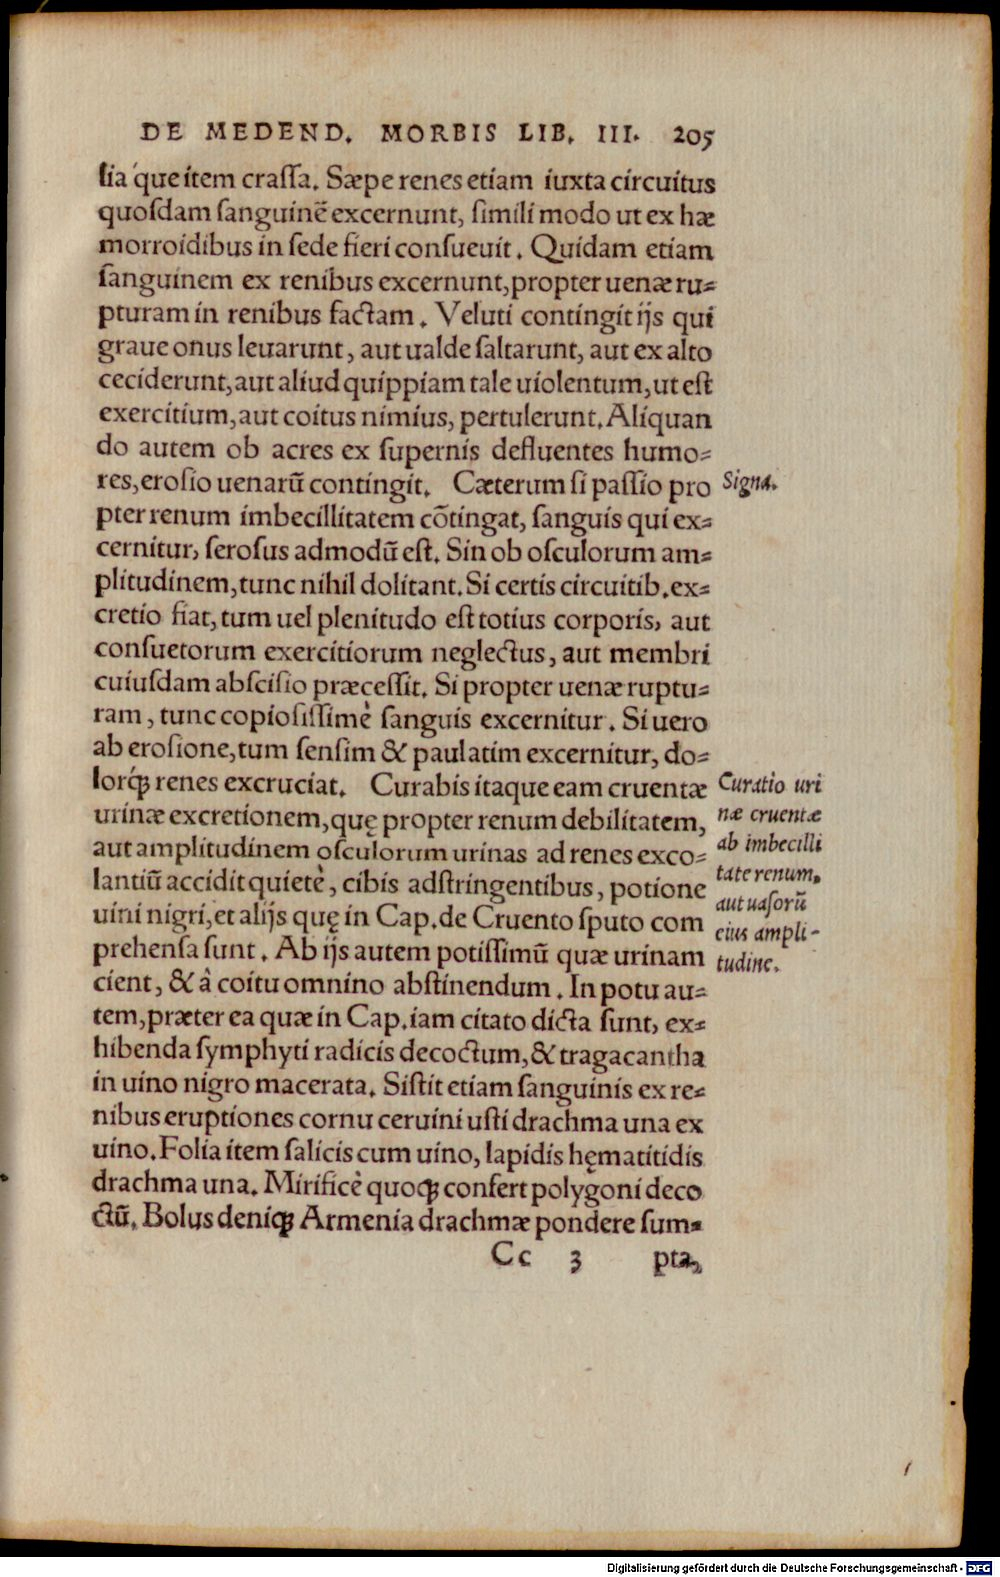 DE MEDEND. MORBIS LIB. III. 205
lia´que item crassa. Sæpe renes etiam iuxta circuitus
quosdam sanguinē excernunt, simili modo ut ex hæ
morroidibus in sede fieri consueuit. Quidam etiam
sanguinem ex renibus excernunt, propter uenæ ru-
pturam in renibus factam. Veluti contingit ijs qui
graue onus leuarunt, aut ualde saltarunt, aut ex alto
ceciderunt, aut aliud quippiam tale uiolentum, ut est
exercitium, aut coitus nimius, pertulerunt. Aliquan
do autem ob acres ex supernis defluentes humo-
res, erosio uenarū contingit. Cæterum si passio pro
Signa.
pter renum imbecillitatem cōtingat, sanguis qui ex-
cernitur, serosus admodū est. Sin ob osculorum am-
plitudinem, tunc nihil dolitant. Si certis circuitib. ex-
cretio fiat, tum uel plenitudo est totius corporis, aut
consuetorum exercitiorum neglectus, aut membri
cuiusdam abscisio præcessit. Si propter uenæ ruptu-
ram, tunc copiosissimè sanguis excernitur. Si uero
ab erosione, tum sensim & paulatim excernitur, do-
lorq́; renes excruciat. Curabis itaque eam cruentæ
urinæ excretionem, quę propter renum debilitatem,
aut amplitudinem osculorum urinas ad renes exco-
lantiū accidit quietè, cibis adstringentibus, potione
uini nigri, et alijs quę in Cap. de Cruento sputo com
prehensa sunt. Ab ijs autem potissimū quæ urinam
cient, & â coitu omnino abstinendum. In potu au-
tem, præter ea quæ in Cap. iam citato dicta sunt, ex-
hibenda symphyti radicis decoctum, & tragacantha
in uino nigro macerata. Sistit etiam sanguinis ex re-
nibus eruptiones cornu ceruini usti drachma una ex
uino. Folia item salicis cum uino, lapidis hęmatitidis
drachma una. Mirificè quoq; confert polygoni deco
ctū. Bolus deniq; Armenia drachmæ pondere sum-
Curatio uri
næ cruentæ
ab imbecilli
tate renum,
aut uasorū
eius ampli-
tudine.
Cc 3 pta,
Digitalisierung gefördert durch die Deutsche Forschungsgemeinschaft - DFG